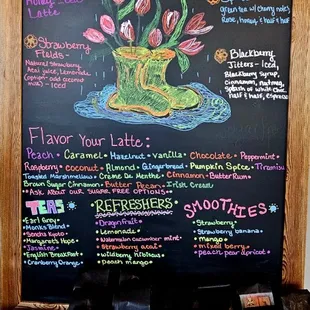 Honey
Latte
green tea w/ cherry notes
Rose, honey & half & half
Strawberry
Fields-
Natural Strawberry
Acai juice, Lemonade
(Copright - add coconut
milk) - Iced
Blackberry
Jitters - Iced,
Blackberry Syrup,
Cinnamon, nutmeg,
splash of white choc
half & half, espresso
Flavor Your Latte:
Peach • Caramel • Hazelnut • Vanilla • Chocolate • Peppermint •
Raspberry • Coconut • Almond • Gingerbread • Pumpkin Spice • Tiramisu
Toasted Marshmallow • Creme De Menthe • Cinnamon • Butter Rum
Brown Sugar Cinnamon • Butter Pecan • Irish Cream
• Ask about our SUGAR FREE OPTIONS
TEAS
Earl Grey
Monks Blend
Sencha Kyoto
Margaret's Hope
Jasmine
English Breakfast
Cranberry Orange
REFRESHERS
Dragonfruit
Lemonade
Watermelon Cucumber mint
Strawberry acai
Wildberry hibiscus
Peach mango
SMOOTHIES
Strawberry
Strawberry banana
mango
mixed berry
peach pear apricot